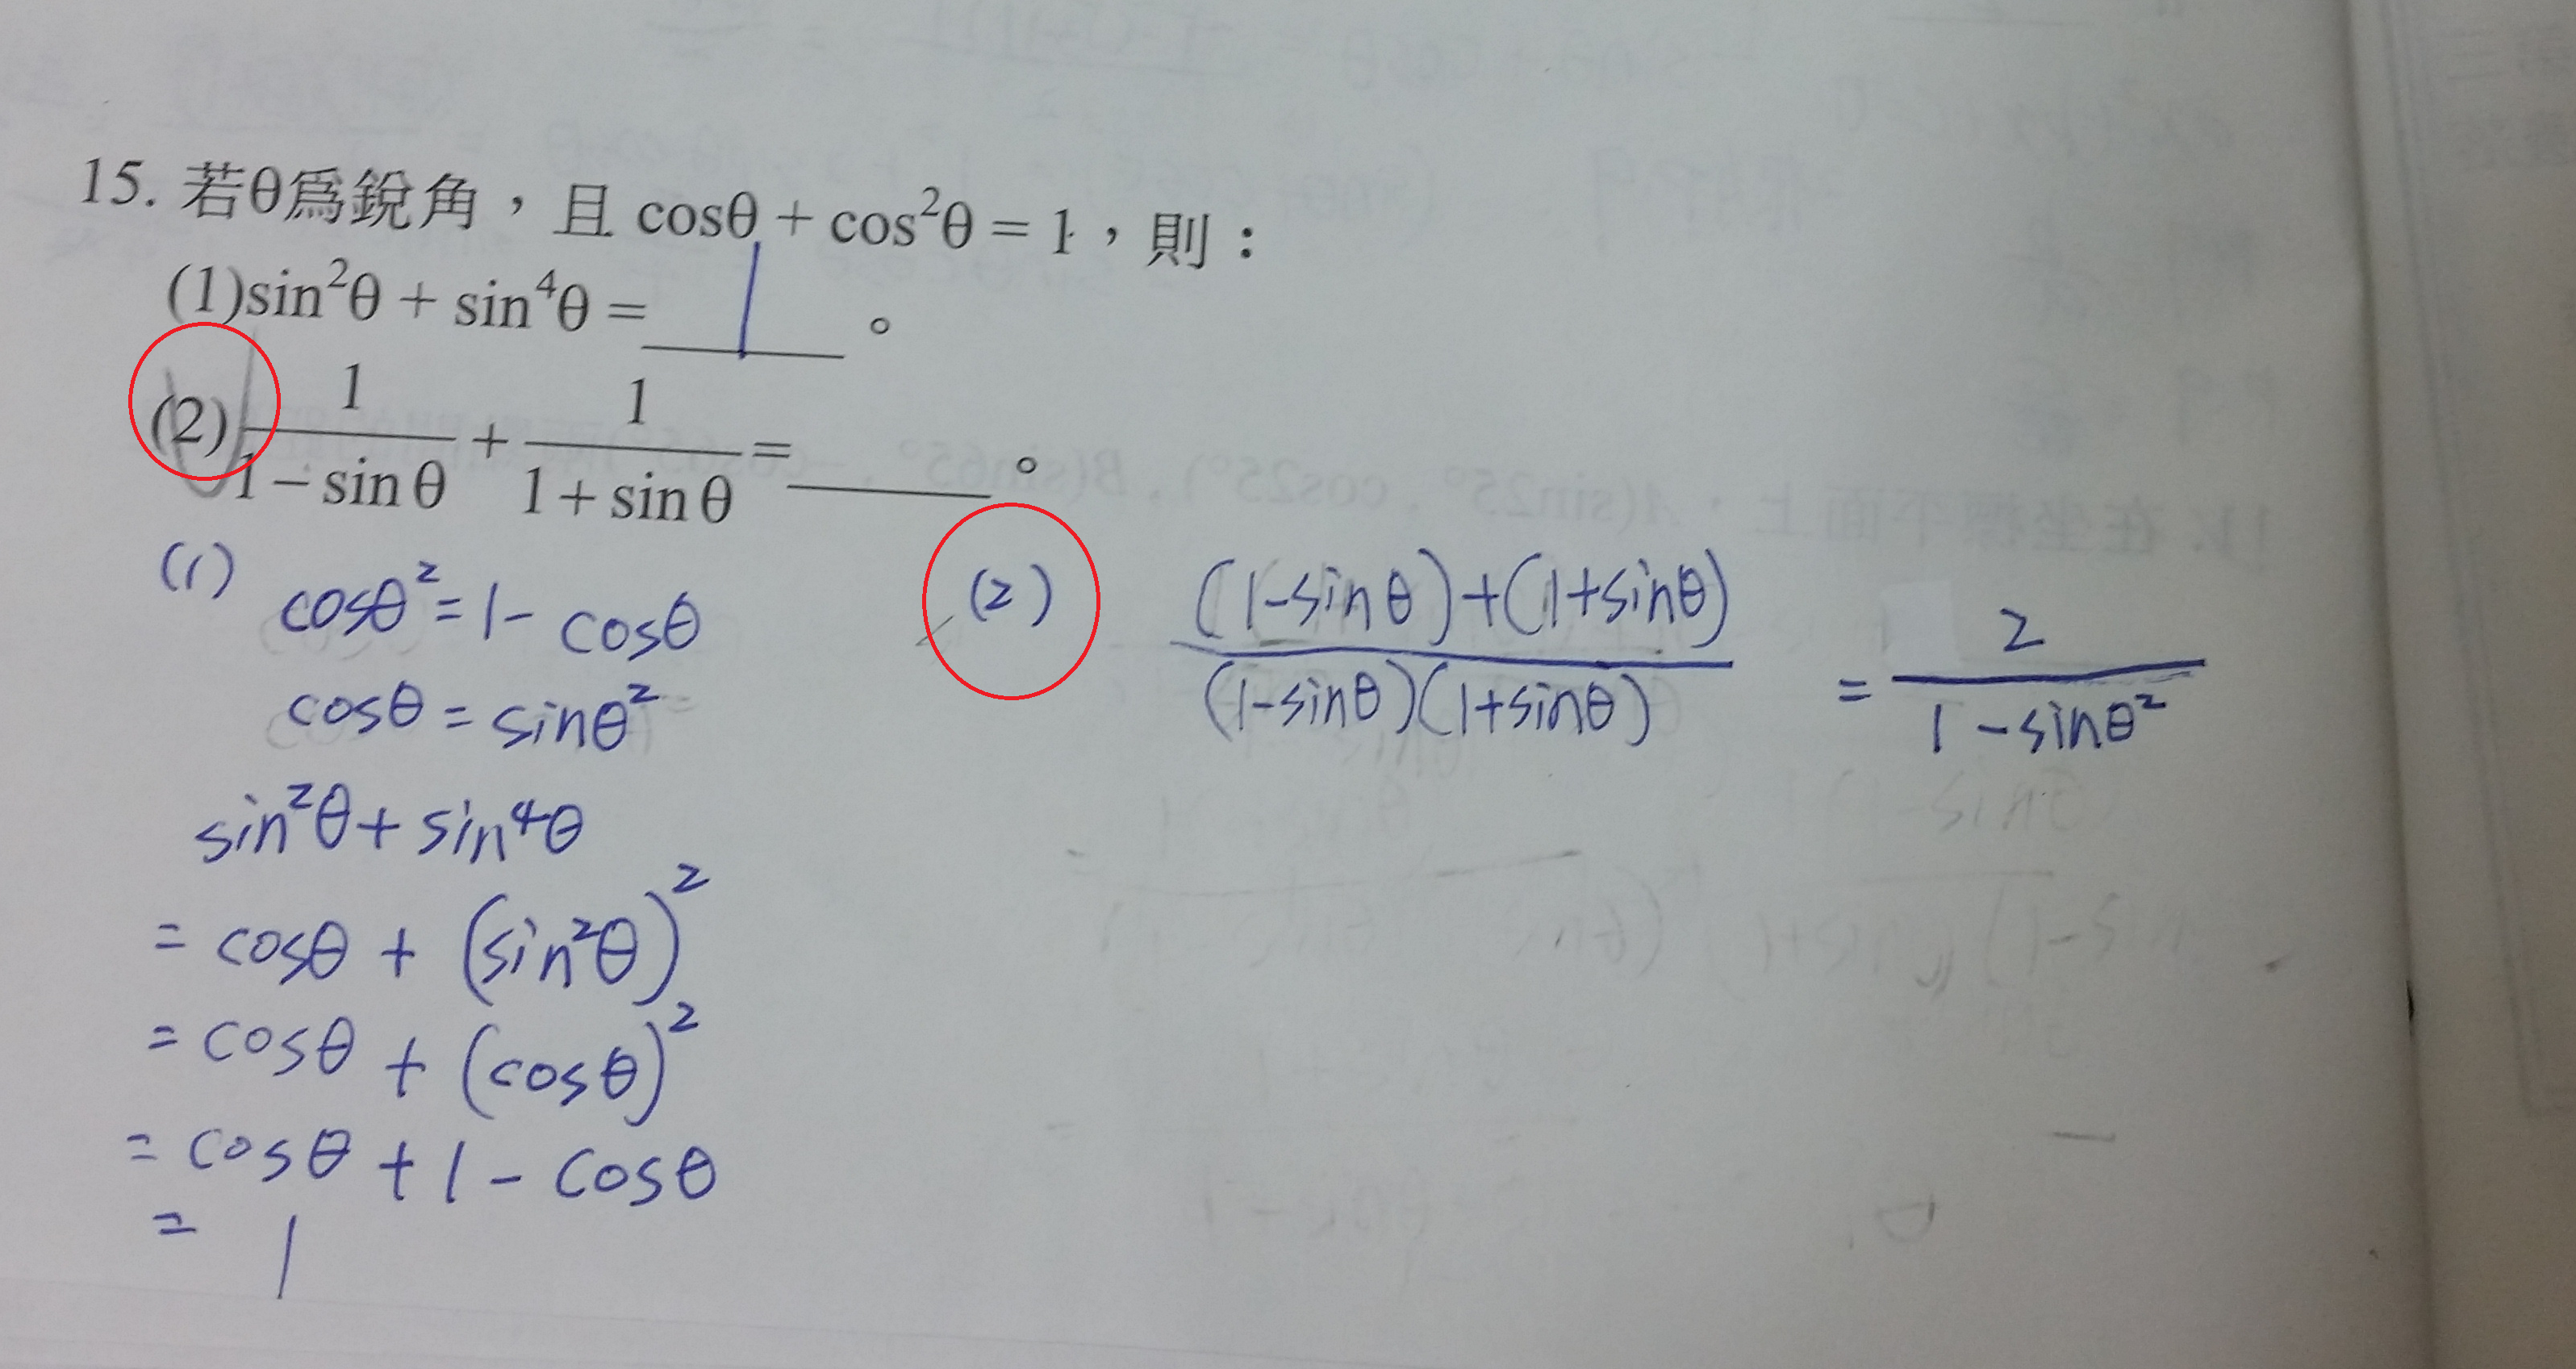 15. 若θ為銳角，且 cosθ + cos²θ = 1，則：
(1)sin²θ + sin⁴θ = 1 。
(2) 1/(1−sin θ) + 1/(1+sin θ) = ______ 。
(1) cosθ² = 1 - cosθ
cosθ = sinθ²
sin²θ + sin⁴θ
= cosθ + (sin²θ)²
= cosθ + (cosθ)²
= cosθ + 1 - cosθ
= 1
(2) ((1-sinθ)+(1+sinθ))/((1-sinθ)(1+sinθ)) = 2/(1-sinθ²)